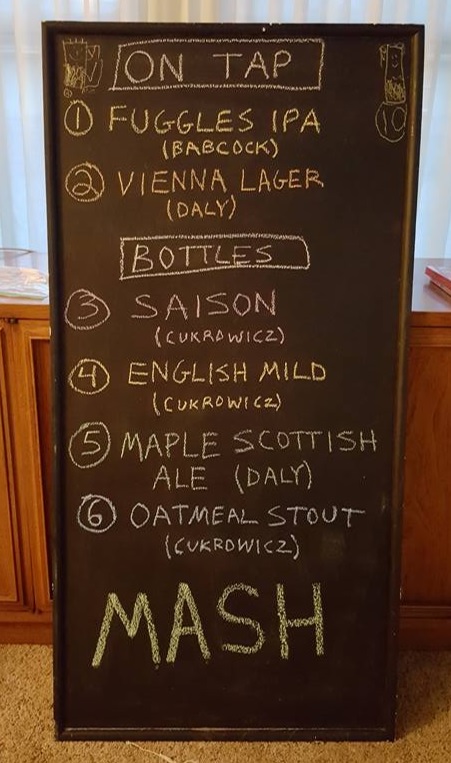 ON TAP
1 FUGGLES IPA
(BABCOCK)
2 VIENNA LAGER
(DALY)
BOTTLES
3 SAISON
(CUKROWICZ)
4 ENGLISH MILD
(CUKROWICZ)
5 MAPLE SCOTTISH
ALE (DALY)
6 OATMEAL STOUT
(CUKROWICZ)
MASH